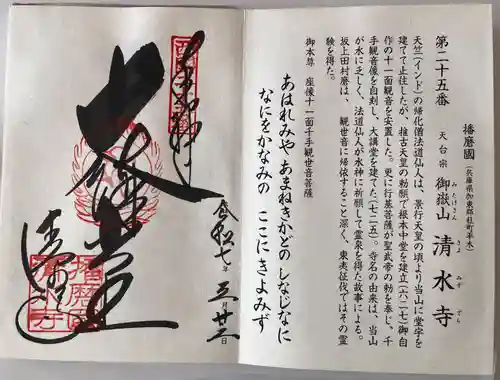 第二十五番
播磨國（兵庫県加東郡社町平木）
天台宗 御嶽山 清水寺
みたけさん きよみずでら
天竺（インド）の帰化僧法道仙人は、景行天皇の頃より当山に堂宇を
建てて止住したが、推古天皇の勅願で根本中堂を建立（六二七）御自
作の十一面観音を安置した。更に行基菩薩が聖武帝の勅を奉じ、千
手観音像を自刻し、大講堂を建てた（七二五）。寺名の由来は、当山
が水に乏しく、法道仙人が水神に祈願して霊泉を得た故事による。
坂上田村麿は、観世音に帰依すること深く、東夷征伐ではその霊
験を得た。
御本尊 座像十一面千手観世音菩薩
あはれみや あまねきかどの しなじなに
なにをかなみの ここにきよみず
令和七年 五月廿三日
大講堂
清水寺
播磨國